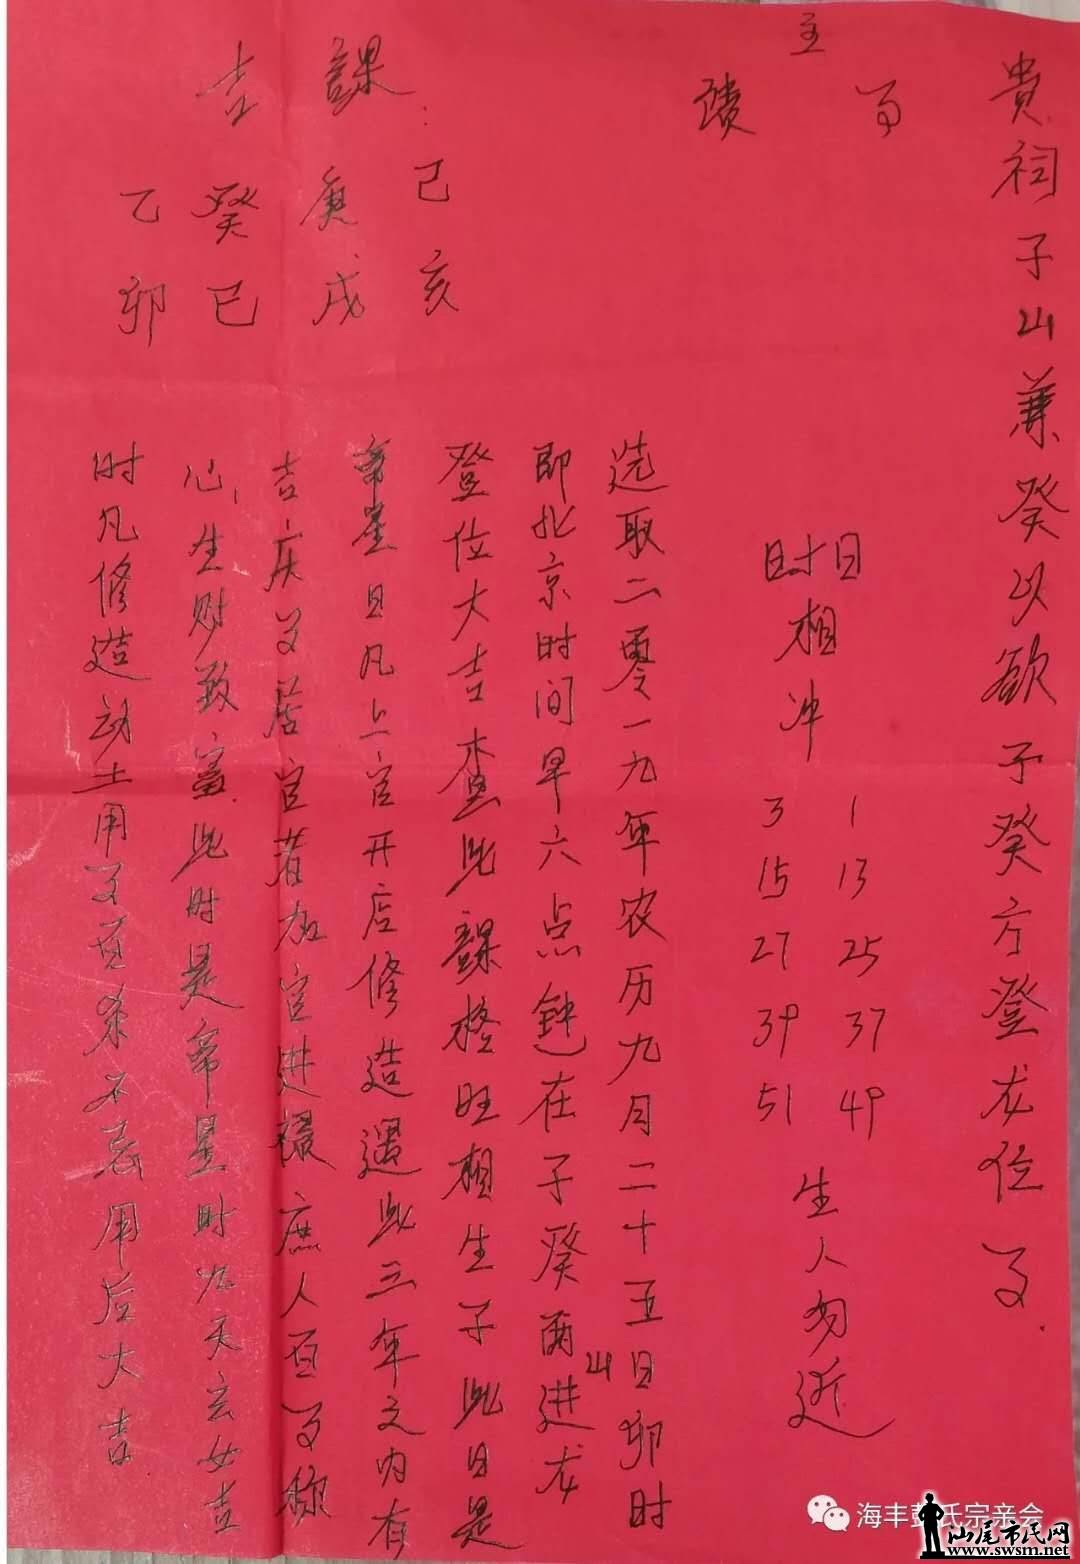 貴祠子山兼癸以欲予癸方登龙位了
主
了
時日相冲
1 13 25 37 49
3 15 27 39 51
生人勿近
选取二零一九年农历九月二十五日卯时
即北京时间早六点钟在子癸两山进龙
登位大吉查此課格旺相生子此日是
帝星日凡上官开店修造遇此三年之内有
吉庆又居官者加官进禄庶人百了称
心生财致富此时是帝星时九天玄女吉
时凡修造动土用了甚杀不忌用后大吉
吉課
己亥
庚戌
癸巳
乙卯
海丰彭氏宗亲会
汕尾市民网
www.swsm.net